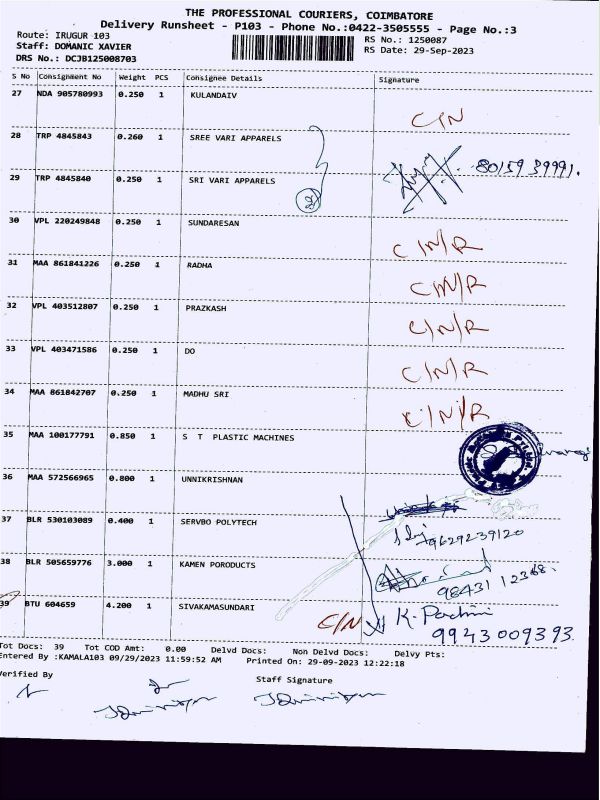 THE PROFESSIONAL COURIERS, COIMBATORE
Delivery Runsheet - P103 - Phone No.:0422-3505555 - Page No.:3
Route: IRUGUR 103 RS No.: 1250087
Staff: DOMANIC XAVIER RS Date: 29-Sep-2023
DRS No.: DCJB125008703
S No Consignment No Weight PCS Consignee Details Signature
27 NDA 905780993 0.250 1 KULANDAIV
C/N
28 TRP 4845843 0.260 1 SREE VARI APPARELS
80159 39991.
29 TRP 4845840 0.250 1 SRI VARI APPARELS
30 VPL 220249848 0.250 1 SUNDARESAN
C/N/R
31 MAA 861841226 0.250 1 RADHA
C/N/R
32 VPL 403512807 0.250 1 PRAZKASH
C/N/R
33 VPL 403471586 0.250 1 DO
C/N/R
34 MAA 861842707 0.250 1 MADHU SRI
C/N/R
35 MAA 100177791 0.850 1 S T PLASTIC MACHINES
36 MAA 572566965 0.800 1 UNNIKRISHNAN
37 BLR 530103089 0.400 1 SERVBO POLYTECH
9629239120
38 BLR 505659776 3.000 1 KAMEN PORODUCTS
98431 12368.
39 BTU 604659 4.200 1 SIVAKAMASUNDARI
C/N K. Pachini
9943009393
Tot Docs: 39 Tot COD Amt: 0.00 Delvd Docs: Non Delvd Docs: Delvy Pts:
Entered By :KAMALA103 09/29/2023 11:59:52 AM Printed On: 29-09-2023 12:22:18
Verified By Staff Signature